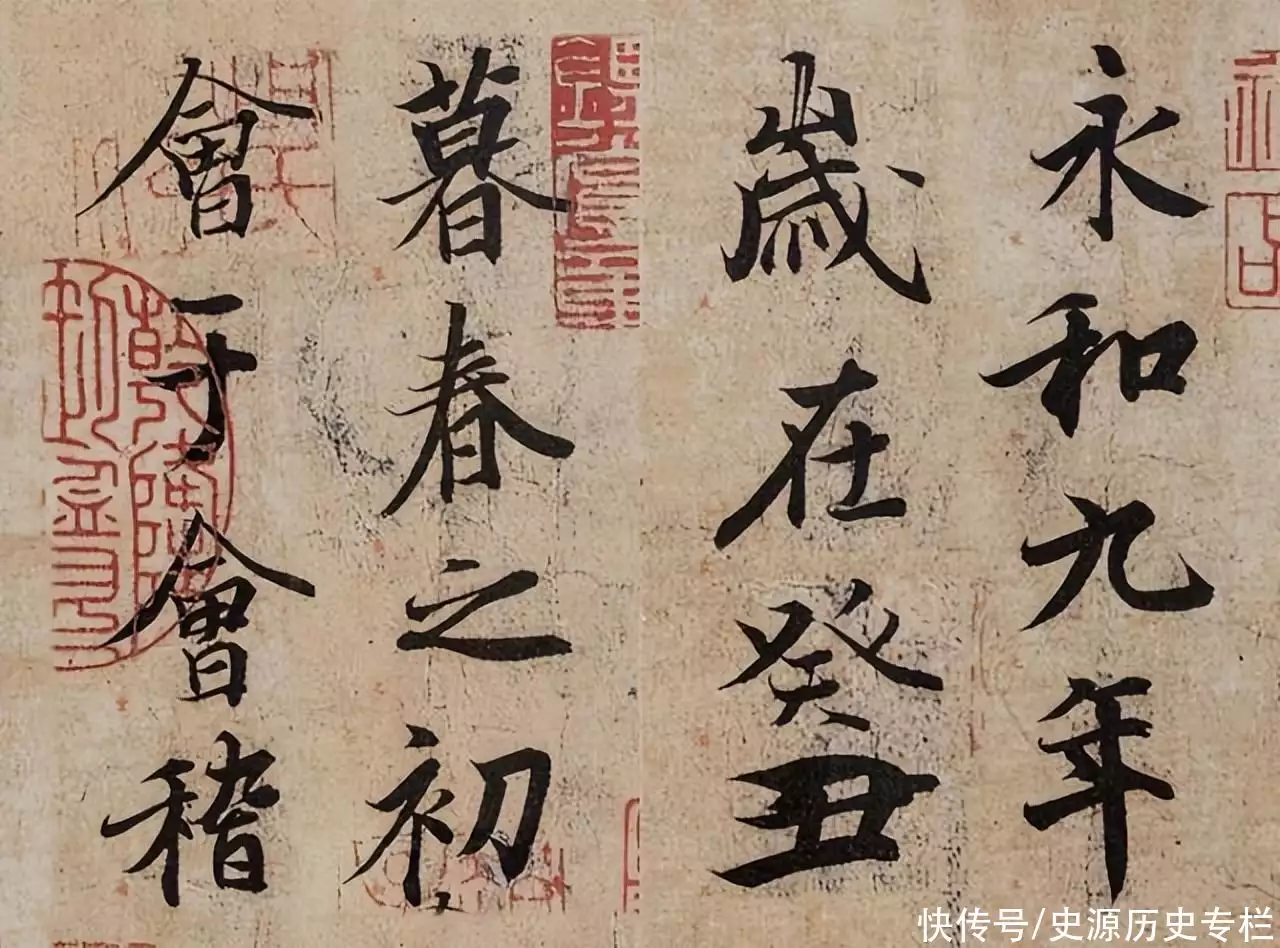 永和九年
歲在癸丑
暮春之初
會于會稽
快传号/史源历史专栏